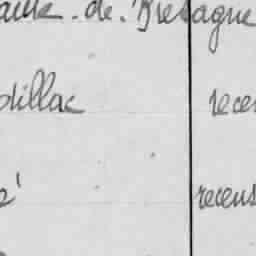 de. Bretagne
dillac recen
recens